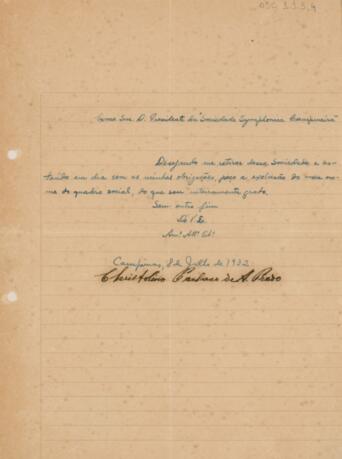 OSC 1.1.5.4
Snr. D. Presidente da "Sociedade Symphonica Campineira"
Desejando me retirar dessa Sociedade e es-
tando em dia com as minhas obrigações, peço a exclusão do meu no-
me do quadro social, do que sou inteiramente grato.
Sem outro fim
Campinas, 8 de Julho de 1932
Christolino Pacheco de A. Prado